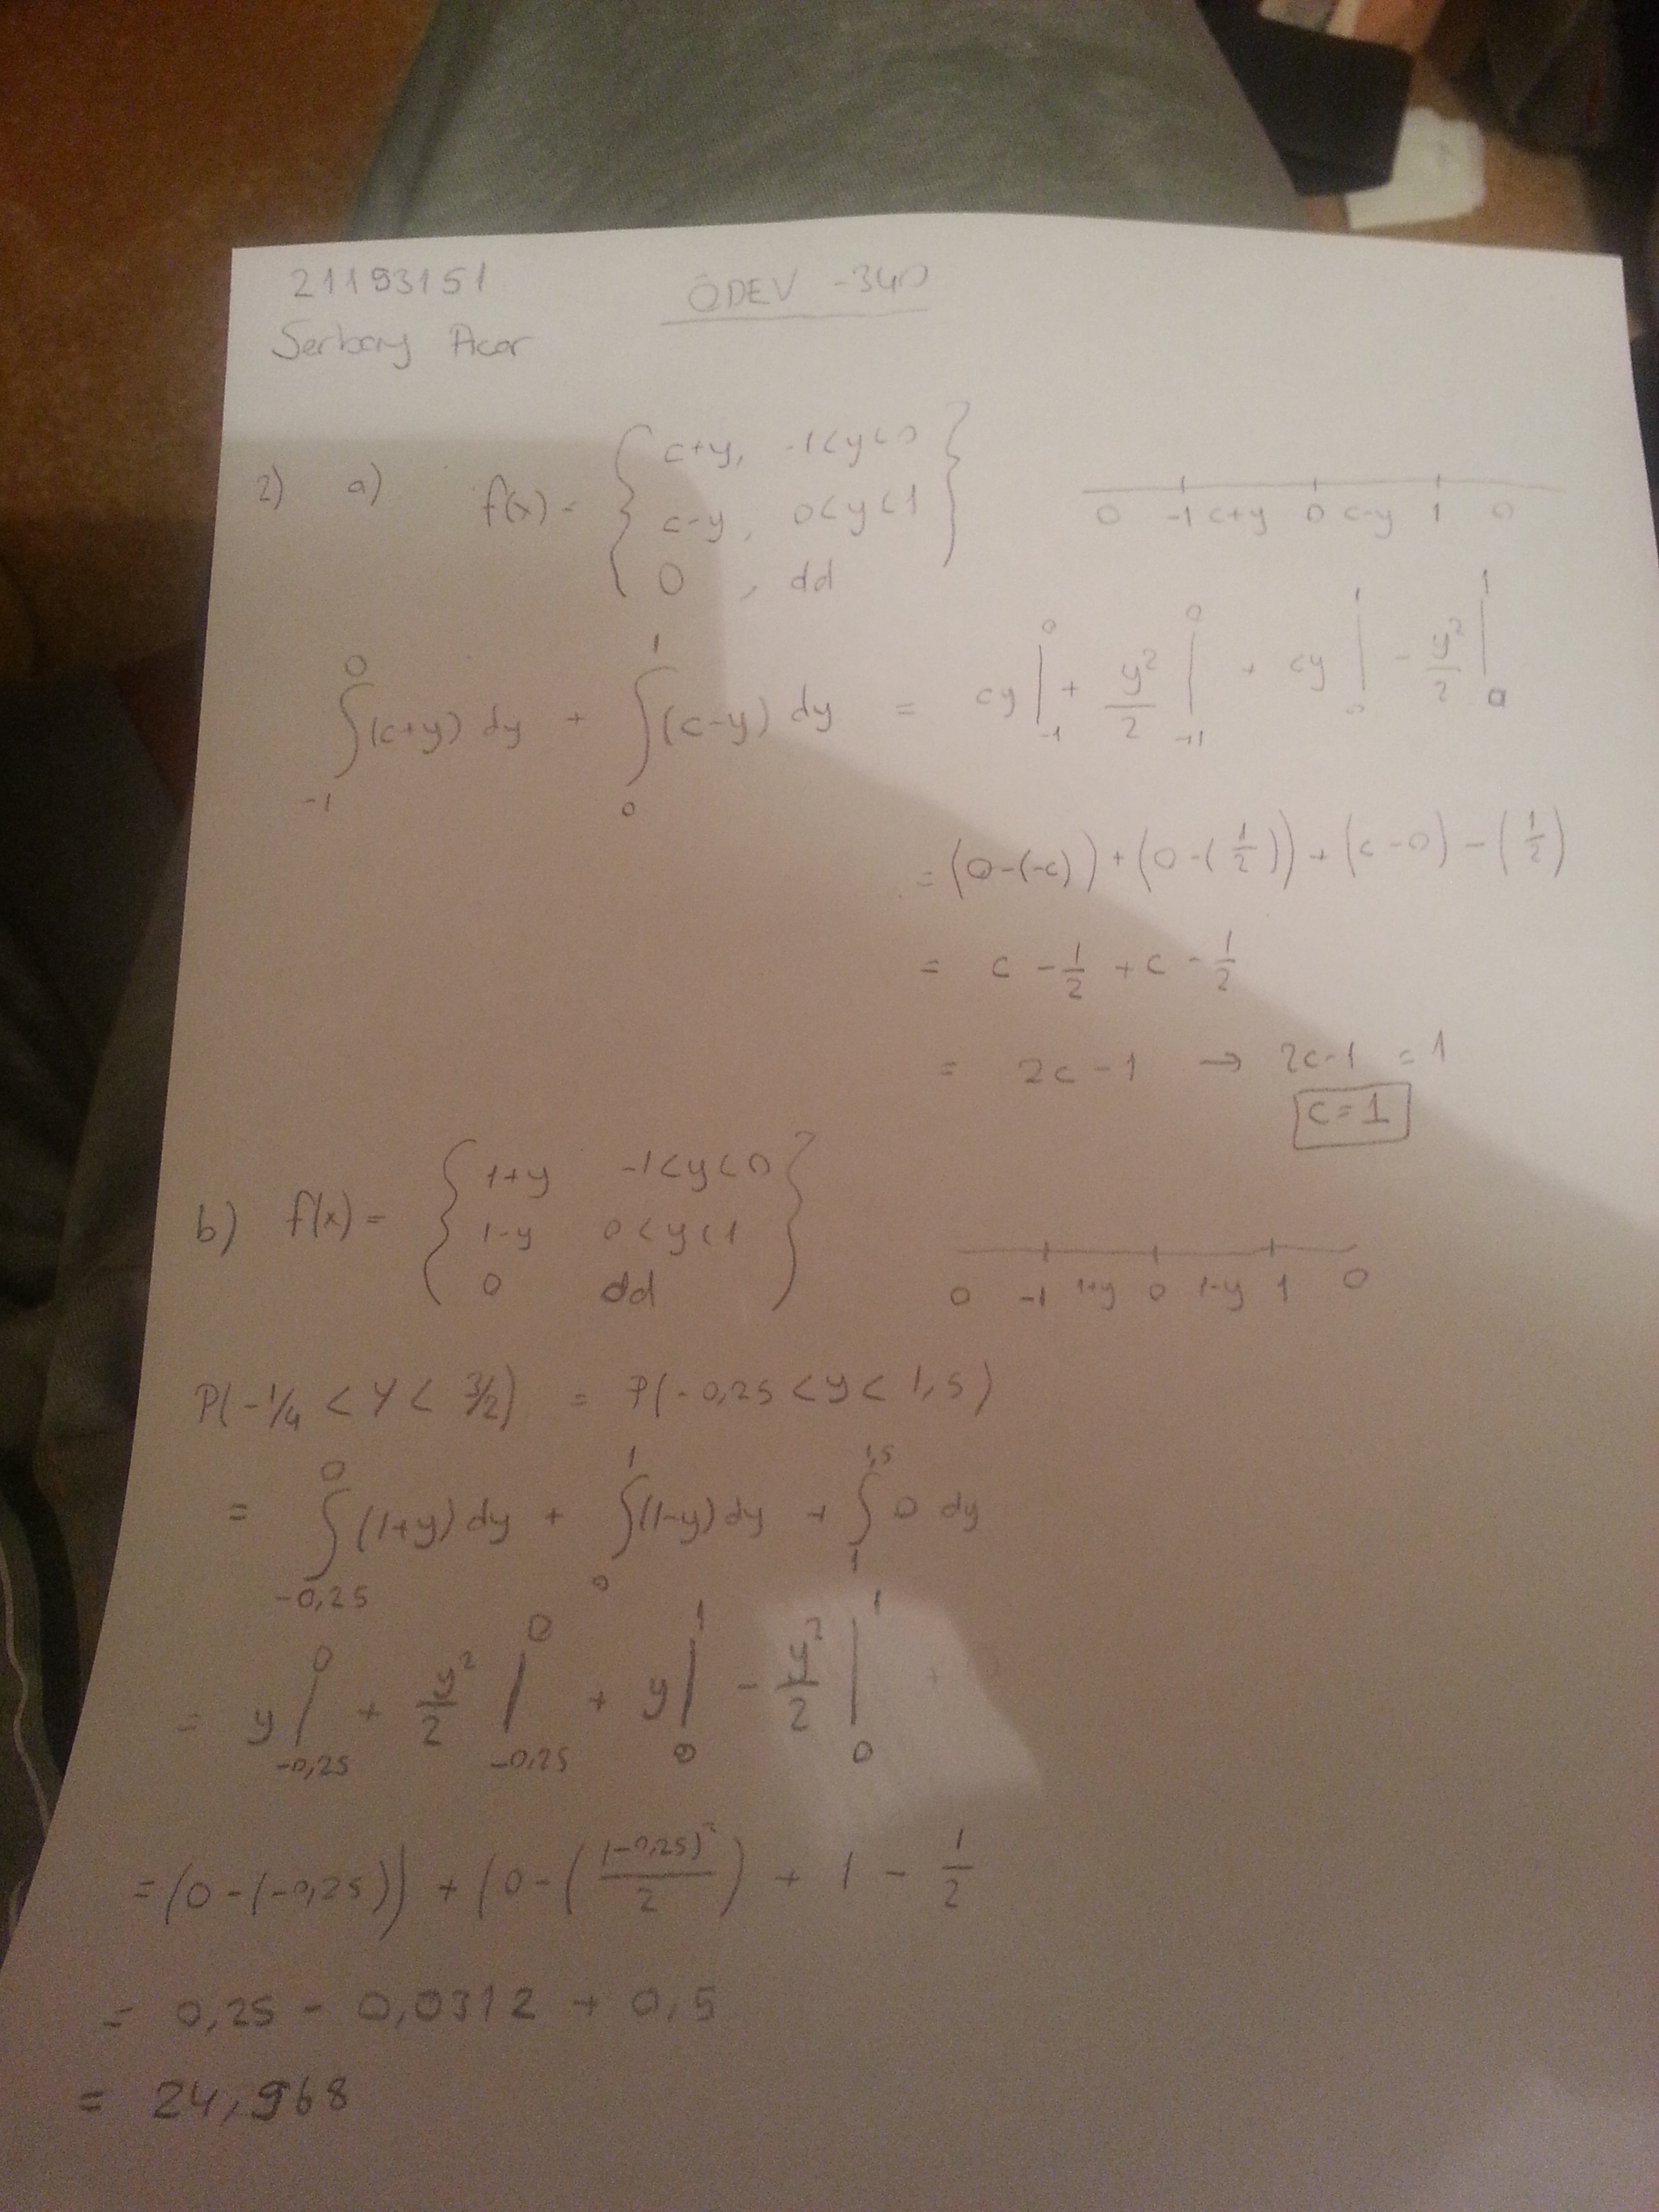 21193151
ÖDEV -340
Serbay Acar
2) a) f(x) = { c+y, -1<y<0
c-y, 0<y<1
0 , dd }
0 -1 c+y 0 c-y 1 0
∫_{-1}^{0} (c+y) dy + ∫_{0}^{1} (c-y) dy = cy |_{-1}^{0} + y²/2 |_{-1}^{0} + cy |_{0}^{1} - y²/2 |_{0}^{1}
= (0-(-c)) + (0-(1/2)) + (c-0) - (1/2)
= c - 1/2 + c - 1/2
= 2c-1 → 2c-1 = 1
c=1
b) f(x) = { 1+y -1<y<0
1-y 0<y<1
0 dd }
0 -1 1+y 0 1-y 1 0
P(-1/4 < Y < 3/2) = P(-0,25 < y < 1,5)
= ∫_{-0,25}^{0} (1+y) dy + ∫_{0}^{1} (1-y) dy + ∫_{1}^{1,5} 0 dy
= y |_{-0,25}^{0} + y²/2 |_{-0,25}^{0} + y |_{0}^{1} - y²/2 |_{0}^{1}
= (0-(-0,25)) + (0-((-0,25)²/2) + 1 - 1/2
= 0,25 - 0,0312 + 0,5
= 24,968